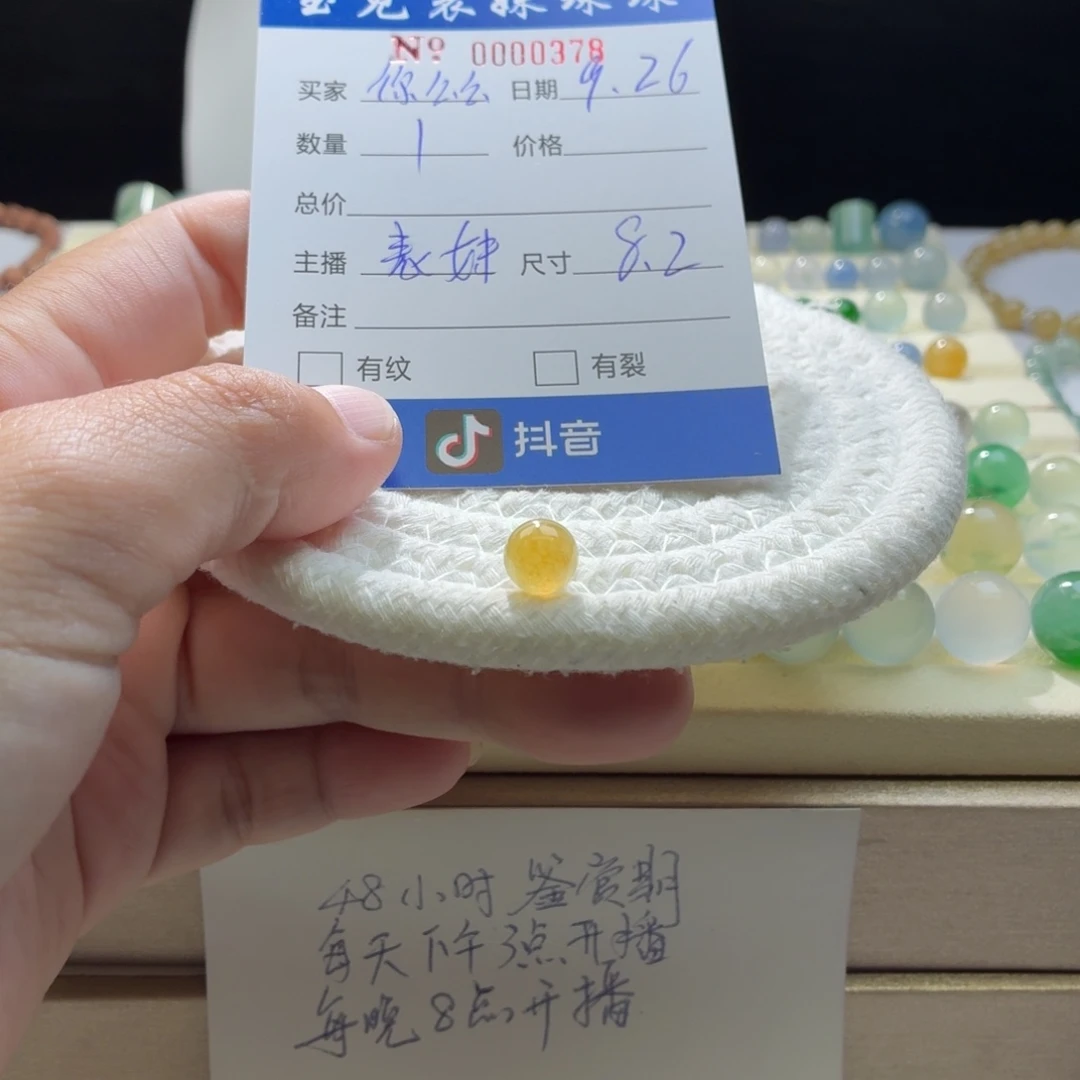 № 0000378
买家 你么么 日期 9.26
数量 1 价格
总价
主播 表妹 尺寸 8.2
备注
有纹 有裂
抖音
48小时鉴赏期
每天下午3点开播
每晚8点开播